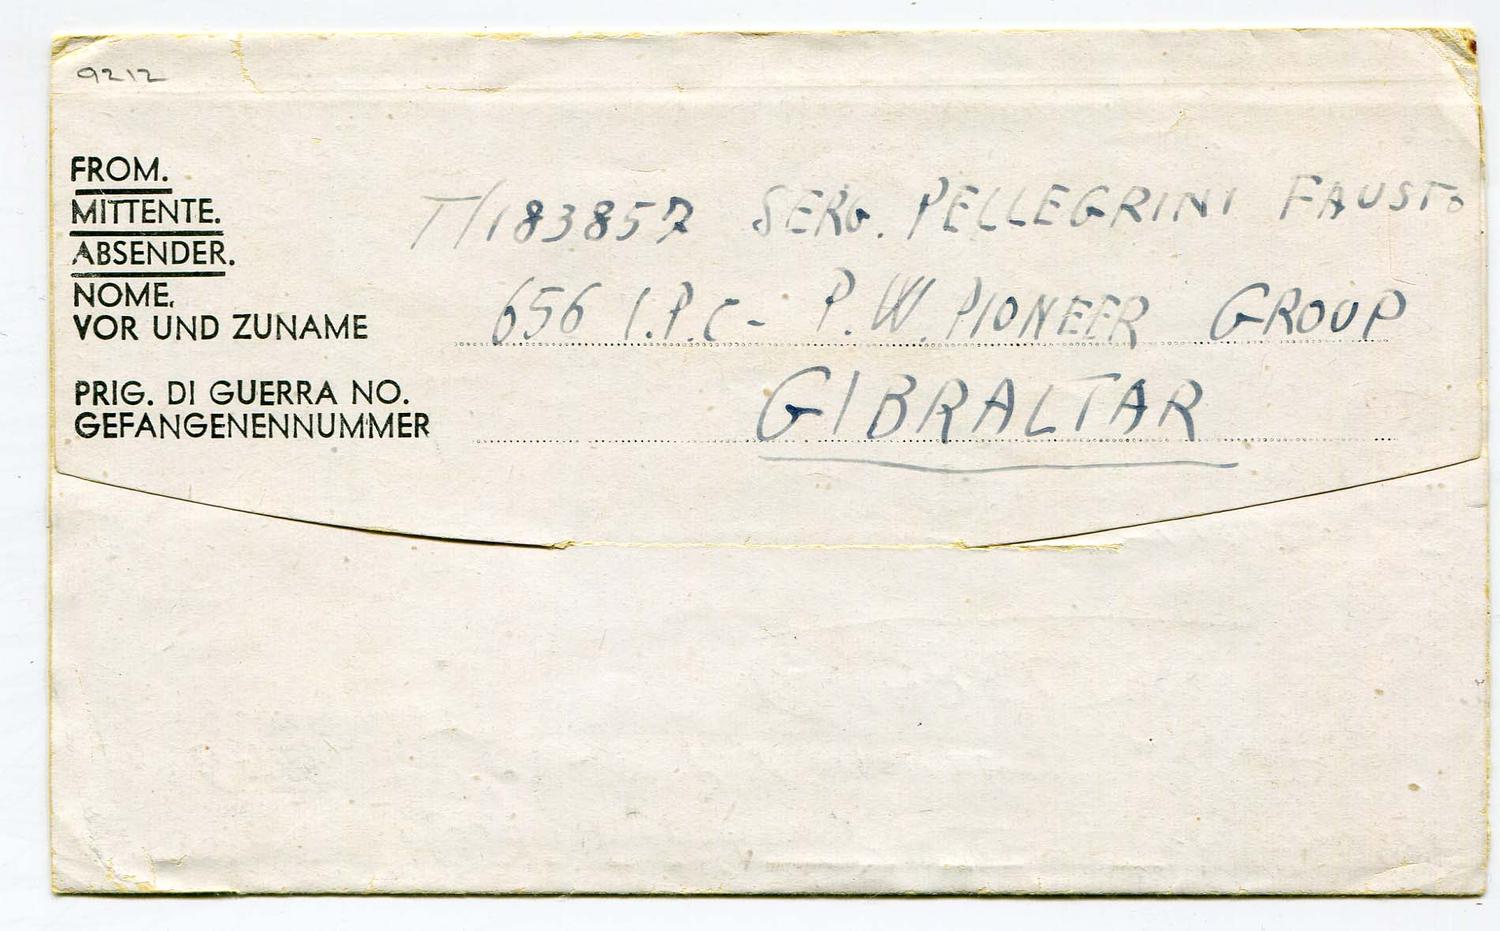 9212
FROM.
MITTENTE.
ABSENDER.
NOME.
VOR UND ZUNAME
T/183857 SERG. PELLEGRINI FAUSTO
656 I.P.C- P.W. PIONEER GROUP
PRIG. DI GUERRA NO.
GEFANGENENNUMMER
GIBRALTAR